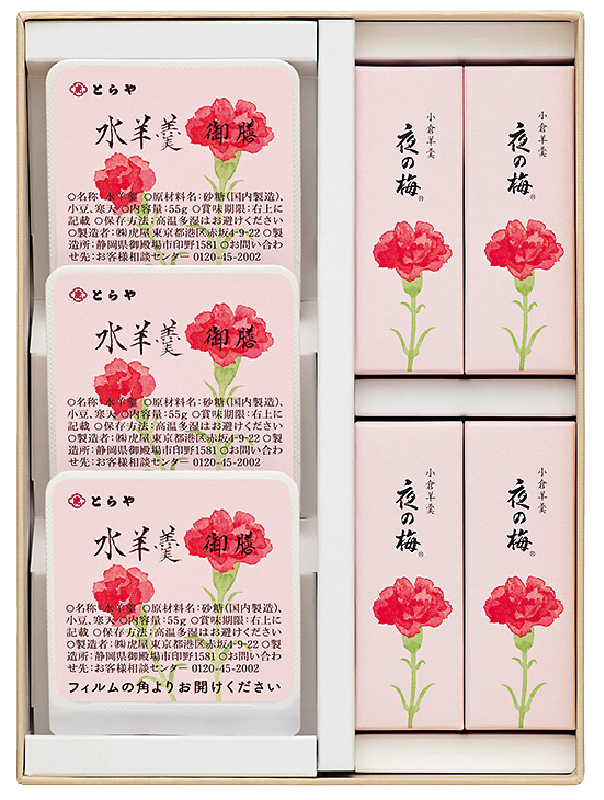 とらや
水羊羹 御膳
○名称 水羊羹 ○原材料名:砂糖(国内製造)、
小豆、寒天 ○内容量:55g ○賞味期限:右上に
記載 ○保存方法:高温多湿はお避けください
○製造者:㈱虎屋 東京都港区赤坂4-9-22 ○製
造所:静岡県御殿場市印野1581 ○お問い合わ
せ先:お客様相談センター 0120-45-2002
とらや
水羊羹 御膳
○名称 水羊羹 ○原材料名:砂糖(国内製造)、
小豆、寒天 ○内容量:55g ○賞味期限:右上に
記載 ○保存方法:高温多湿はお避けください
○製造者:㈱虎屋 東京都港区赤坂4-9-22 ○製
造所:静岡県御殿場市印野1581 ○お問い合わ
せ先:お客様相談センター 0120-45-2002
とらや
水羊羹 御膳
○名称 水羊羹 ○原材料名:砂糖(国内製造)、
小豆、寒天 ○内容量:55g ○賞味期限:右上に
記載 ○保存方法:高温多湿はお避けください
○製造者:㈱虎屋 東京都港区赤坂4-9-22 ○製
造所:静岡県御殿場市印野1581 ○お問い合わ
せ先:お客様相談センター 0120-45-2002
フィルムの角よりお開けください
小倉羊羹
夜の梅®
小倉羊羹
夜の梅®
小倉羊羹
夜の梅®
小倉羊羹
夜の梅®